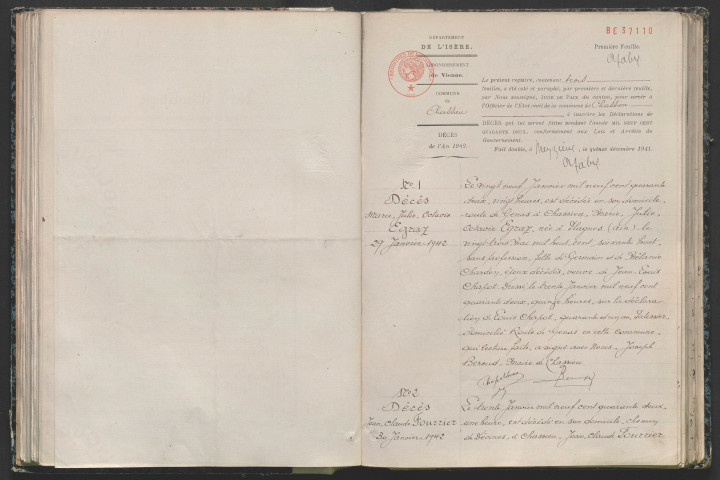 BE37110
DÉPARTEMENT
DE L'ISÈRE.
ARRONDISSEMENT
de Vienne.
COMMUNE
de
DÉCÈS
de l'An 1942.
Première Feuille.
Le présent registre, contenant trois
feuilles, a été coté et paraphé, par première et dernière feuille,
par Nous soussigné, Juge de Paix du canton, pour servir à
l'Officier de l'Etat civil de la commune de Chassieu
à inscrire les Déclarations de
DÉCÈS qui lui seront faites pendant l'année MIL NEUF CENT
QUARANTE DEUX, conformément aux Lois et Arrêtés du
Gouvernement.
Fait double, à Meyzieu, le quinze décembre 1941.
No 1
Décès
Marie, Julie, Octavie
Egraz
29 Janvier 1942
Le vingt neuf Janvier mil neuf cent quarante
deux, vingt heures, est décédée en son domicile
route de Genas à Chassieu, Marie, Julie,
Octavie Egraz, née à (Ain) le
vingt mil huit cent soixante huit
sans profession, fille de Germain et de Mélanie
Chardon, époux décédés, veuve de Jean Louis
Chapot. Dressé le trente Janvier mil neuf cent
quarante deux, quinze heures, sur la déclara
tion de Louis Chapot, quarante et un an,
domicilié Route de Genas en cette commune,
qui, lecture faite, a signé avec Nous, Joseph
Maire de Chassieu
No 2
Décès
Jean, Claude Fourrier
30 Janvier 1942
Le trente Janvier mil neuf cent quarante deux,
heure, est décédé en son domicile, chemin
de Décines, à Chassieu, Jean, Claude Fourrier